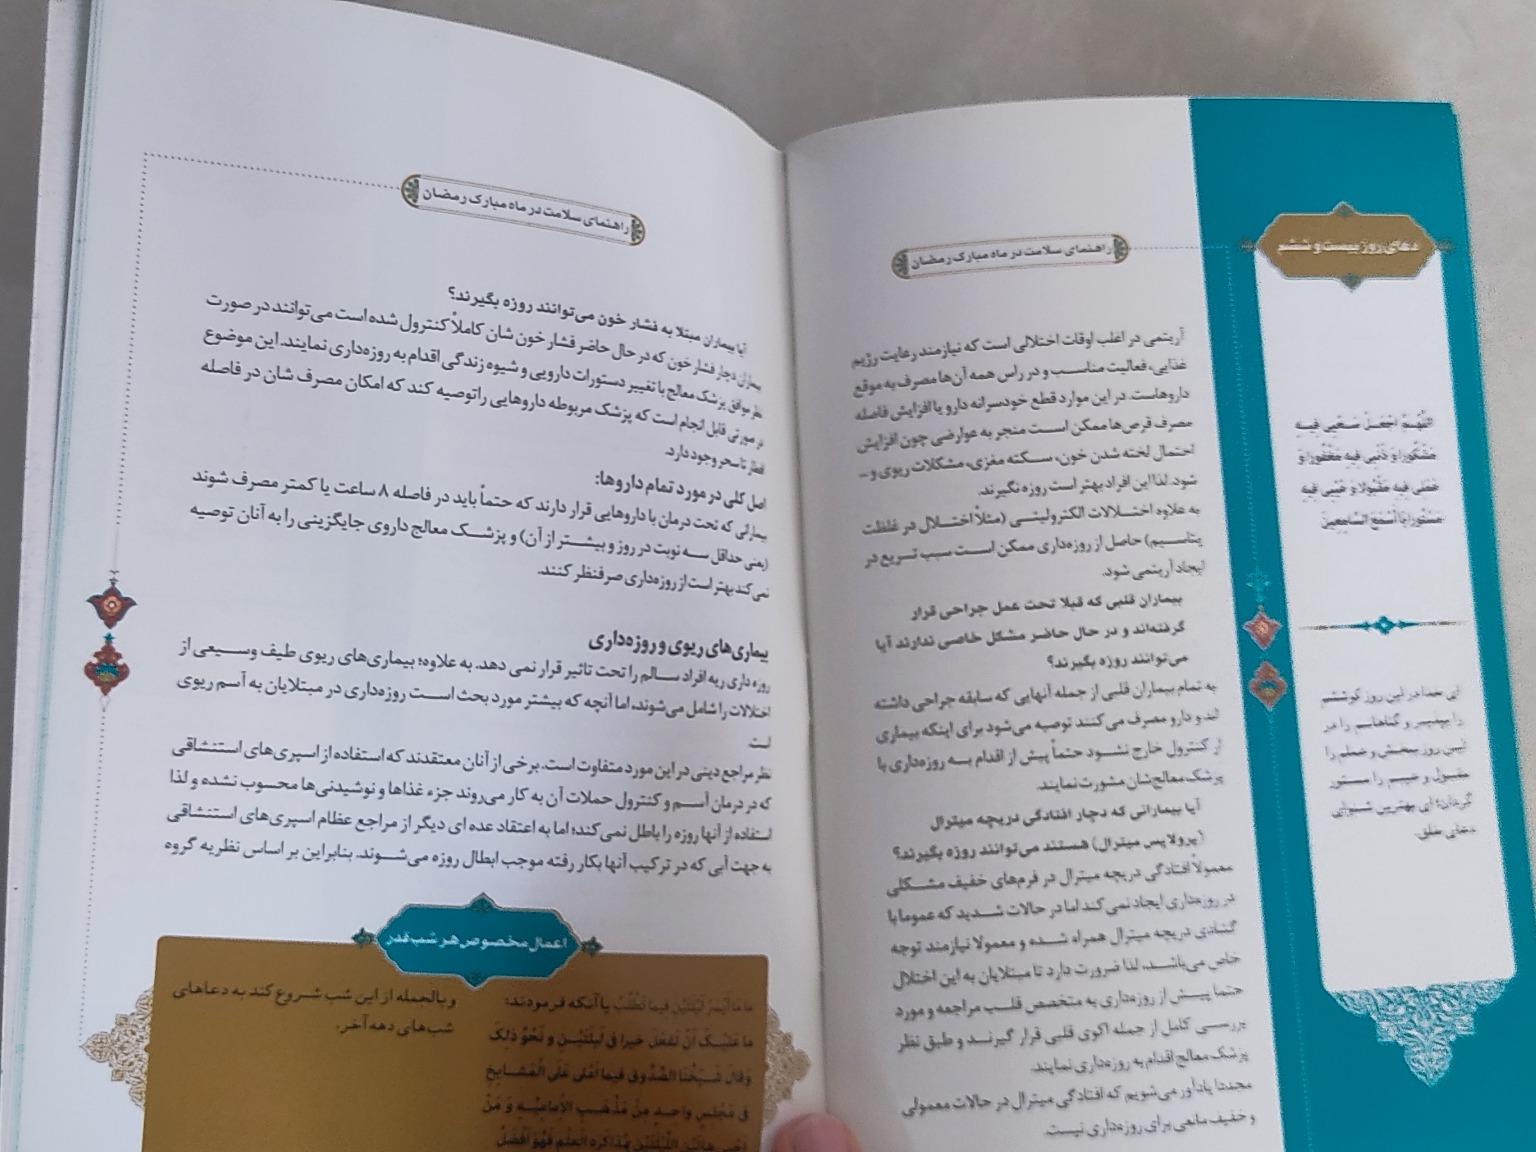 دعای روز بیست و ششم
اللّهُمَّ اجْعَلْ سَعْیی فیهِ
مَشْکُورًا وَ ذَنْبی فیهِ مَغْفُورًا وَ
عَمَلی فیهِ مَقْبُولًا وَ عَیْبی فیهِ
مَسْتُورًا یا أسْمَعَ السّامِعینَ
ای خدا در این روز کوششم
را بپذیر و گناهانم را در
این روز ببخش و عملم را
مقبول و عیبم را مستور
گردان؛ ای بهترین شنوای
دعای خلق.
راهنمای سلامت در ماه مبارک رمضان
آریتمی در اغلب اوقات اختلالی است که نیازمند رعایت رژیم
غذایی، فعالیت مناسب و در راس همه آن‌ها مصرف به موقع
داروهاست. در این موارد قطع خودسرانه دارو یا افزایش فاصله
مصرف قرص‌ها ممکن است منجر به عوارضی چون افزایش
احتمال لخته شدن خون، سکته مغزی، مشکلات ریوی و...
شود. لذا این افراد بهتر است روزه نگیرند.
به علاوه اختلالات الکترولیتی (مثلاً اختلال در غلظت
پتاسیم) حاصل از روزه‌داری ممکن است سبب تسریع در
ایجاد آریتمی شود.
بیماران قلبی که قبلا تحت عمل جراحی قرار
گرفته‌اند و در حال حاضر مشکل خاصی ندارند آیا
می‌توانند روزه بگیرند؟
به تمام بیماران قلبی از جمله آنهایی که سابقه جراحی داشته
اند و دارو مصرف می‌کنند توصیه می‌شود برای اینکه بیماری
از کنترل خارج نشود حتماً پیش از اقدام به روزه‌داری با
پزشک معالج‌شان مشورت نمایند.
آیا بیمارانی که دچار افتادگی دریچه میترال
(پرولاپس میترال) هستند می‌توانند روزه بگیرند؟
معمولاً افتادگی دریچه میترال در فرم‌های خفیف مشکلی
در روزه‌داری ایجاد نمی‌کند اما در حالات شدید که عموما با
گشادی دریچه میترال همراه شده و معمولا نیازمند توجه
خاص می‌باشد، لذا ضرورت دارد تا مبتلایان به این اختلال
حتما پیش از روزه‌داری به متخصص قلب مراجعه و مورد
بررسی کامل از جمله اکوی قلبی قرار گیرند و طبق نظر
پزشک معالج اقدام به روزه‌داری نمایند.
مجددا یادآور می‌شویم که افتادگی میترال در حالات معمولی
و خفیف مانعی برای روزه‌داری نیست.
راهنمای سلامت در ماه مبارک رمضان
آیا بیماران مبتلا به فشار خون می‌توانند روزه بگیرند؟
بیماران دچار فشار خون که در حال حاضر فشار خون شان کاملاً کنترل شده است می‌توانند در صورت
نظر موافق پزشک معالج با تغییر دستورات دارویی و شیوه زندگی اقدام به روزه‌داری نمایند. این موضوع
در صورتی قابل انجام است که پزشک مربوطه داروهایی را توصیه کند که امکان مصرف شان در فاصله
افطار تا سحر وجود دارد.
اصل کلی در مورد تمام داروها:
بیمارانی که تحت درمان با داروهایی قرار دارند که حتماً باید در فاصله ۸ ساعت یا کمتر مصرف شوند
(یعنی حداقل سه نوبت در روز و بیشتر از آن) و پزشک معالج داروی جایگزینی را به آنان توصیه
نمی‌کند بهتر است از روزه‌داری صرفنظر کنند.
بیماری‌های ریوی و روزه‌داری
روزه داری ریه افراد سالم را تحت تاثیر قرار نمی دهد. به علاوه؛ بیماری‌های ریوی طیف وسیعی از
اختلالات را شامل می‌شوند، اما آنچه که بیشتر مورد بحث است روزه‌داری در مبتلایان به آسم ریوی
است.
نظر مراجع دینی در این مورد متفاوت است. برخی از آنان معتقدند که استفاده از اسپری‌های استنشاقی
که در درمان آسم و کنترل حملات آن به کار می‌روند جزء غذاها و نوشیدنی‌ها محسوب نشده و لذا
استفاده از آنها روزه را باطل نمی‌کند؛ اما به اعتقاد عده ای دیگر از مراجع عظام اسپری‌های استنشاقی
به جهت آبی که در ترکیب آنها بکار رفته موجب ابطال روزه می‌شوند. بنابراین بر اساس نظریه گروه
اعمال مخصوص هر شب قدر
ما مَا أَیْسَرَ لَیْلَتَیْنِ فیما تَطْلُبُ یا آنکه فرمودند:
ما عَلَیْکَ أَنْ تَفْعَلَ خَیرا فی لَیلَتَیْنِ وَ نَحْوُ ذلِکَ
وَ قالَ شَیْخُنَا الصَّدُوق فیما أَمْلی عَلَی الْمَشایِخِ
فی مَجْلِسٍ واحِدٍ مِنْ مَذْهَبِ الْإِمامِیَّهِ وَ مَنْ
أَحْیی هاتَیْنِ اللَّیْلَتَیْنِ بِمُذاکَرَهِ الْعِلْمِ فَهُوَ أَفْضَلُ
و بالجمله از این شب شروع کند به دعاهای
شب‌های دهه آخر.